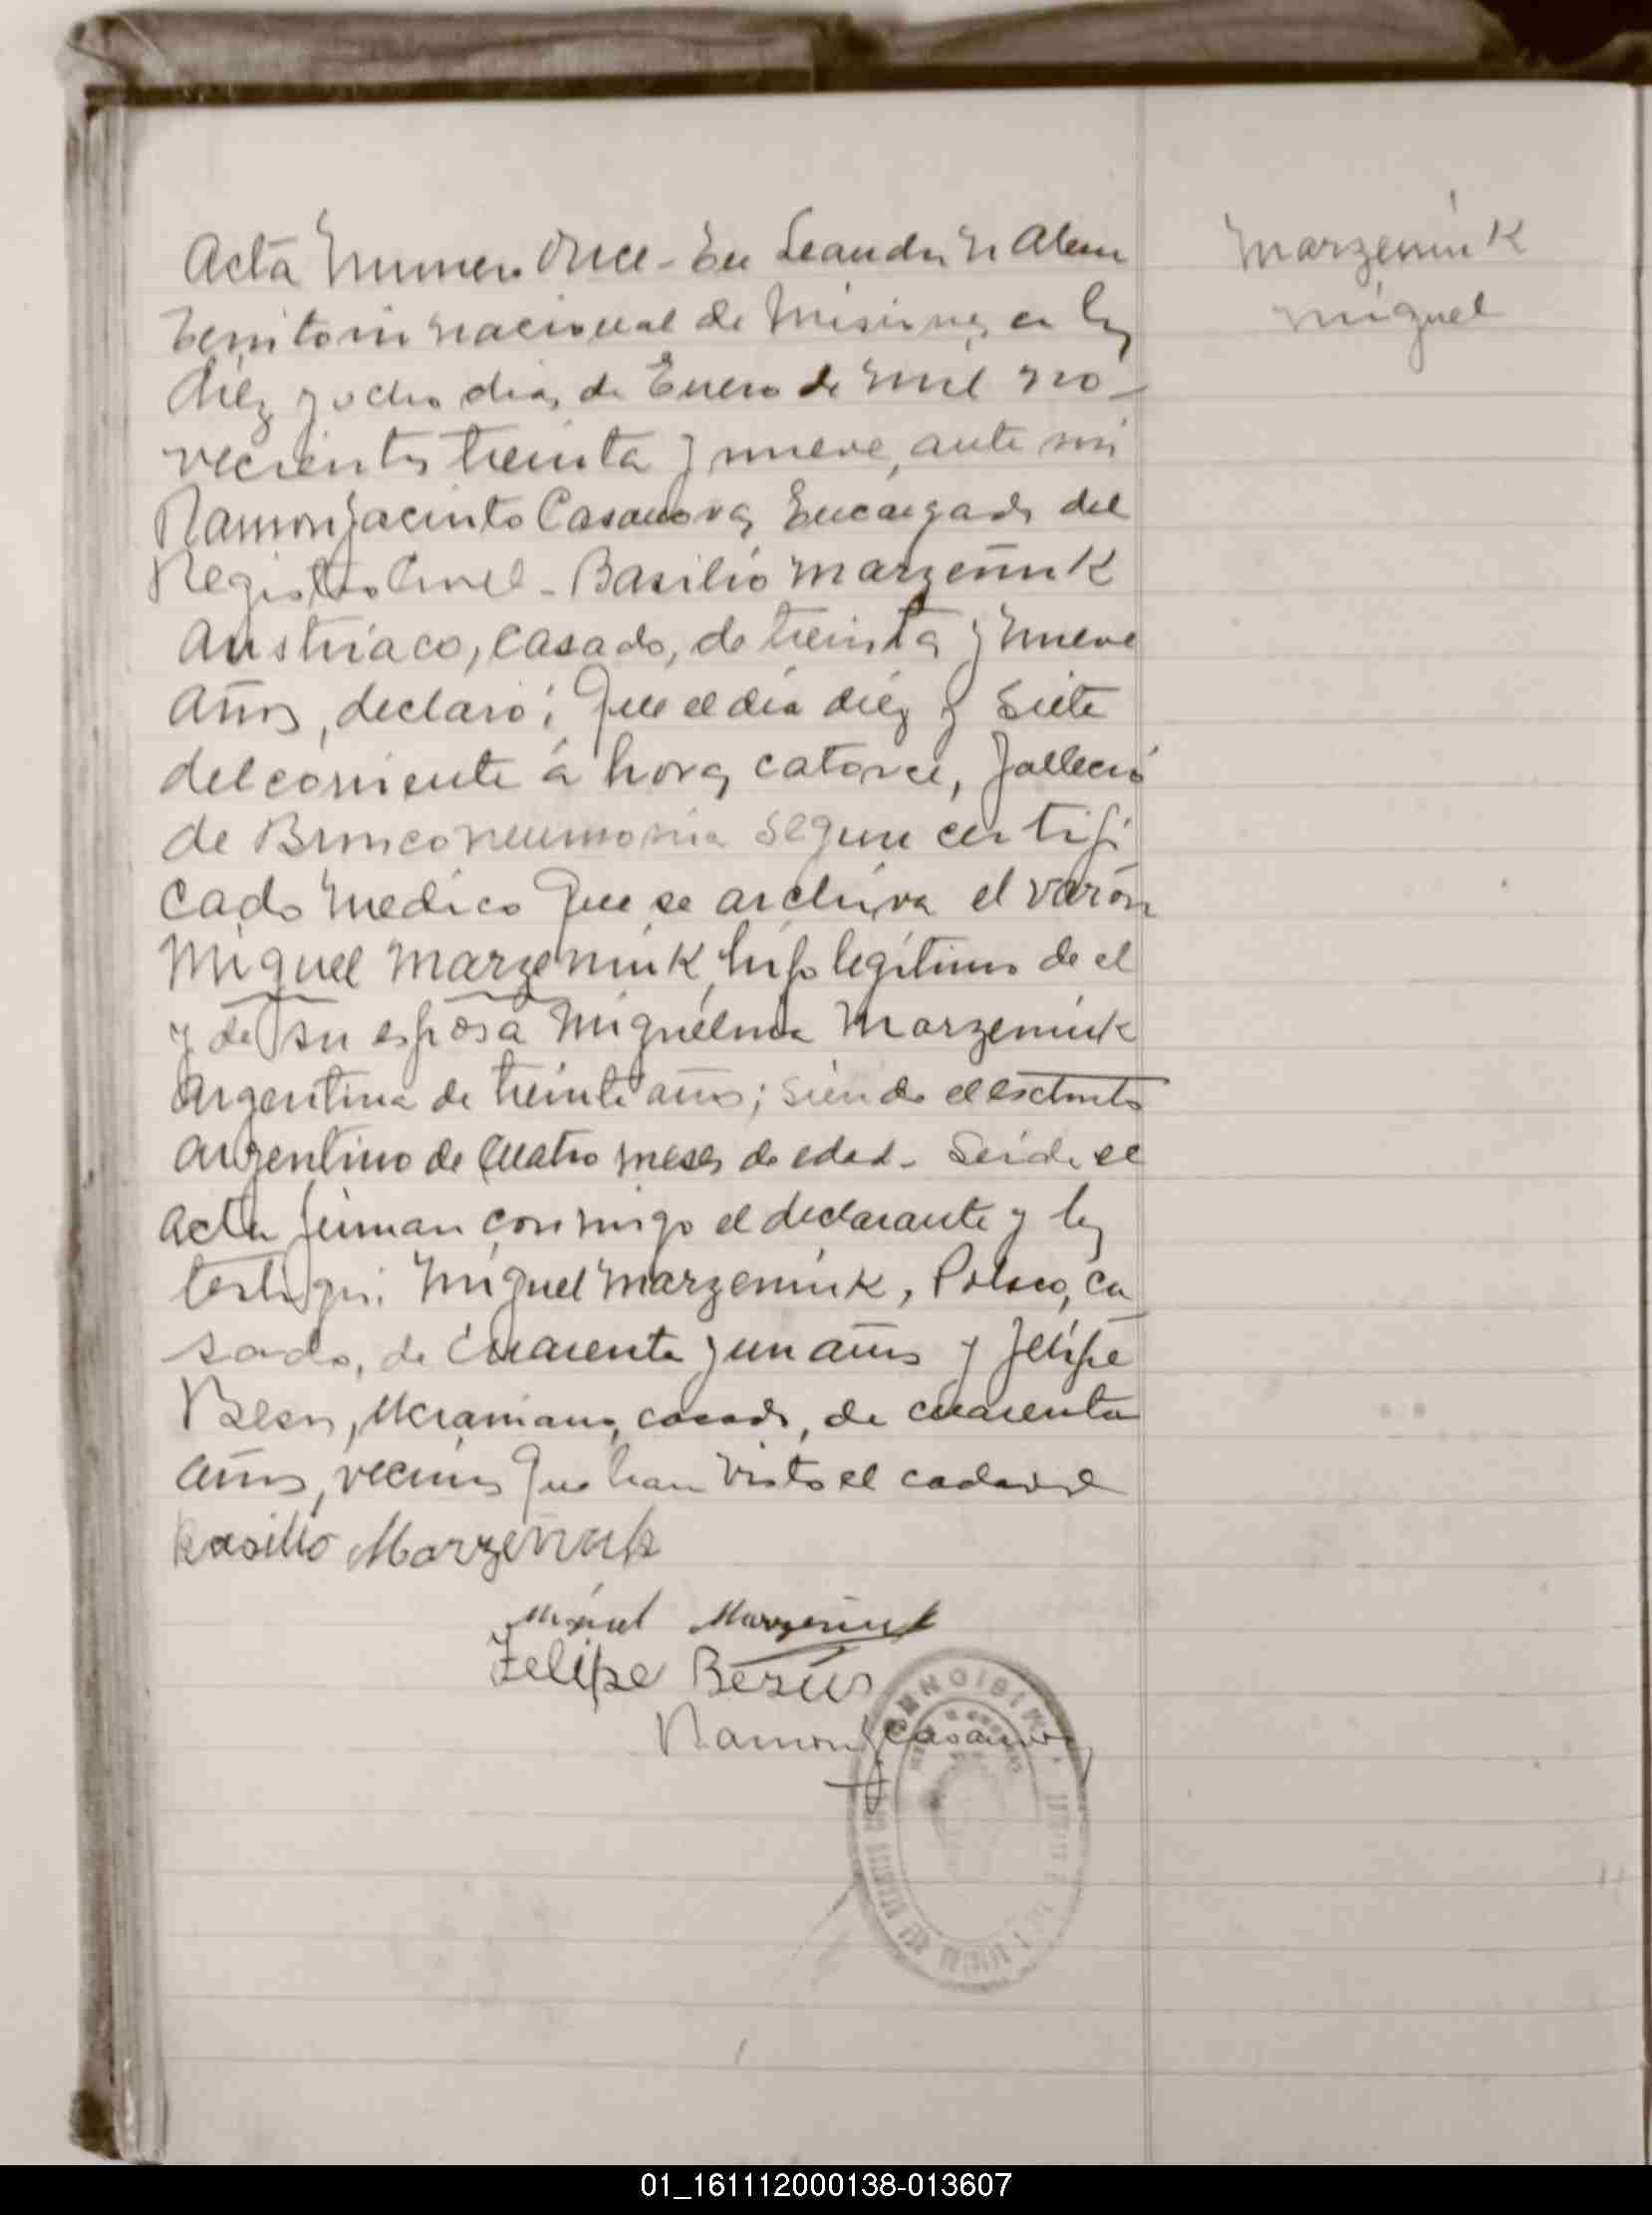 Acta Numero Once - En Leandro N Alem
Territorio nacional de Misiones, a los
diez y ocho dias de Enero de mil no-
vecientos treinta y nueve, ante mi
Ramon Jacinto Casanova, Encargado del
Registro Civil - Basilio Marzeniuk
Austriaco, casado, de treinta y nueve
años, declaró; Que el dia diez y siete
del corriente á horas catorce, falleció
de Bronconeumonia segun certifi
cado medico que se archiva el varón
Miguel Marzeniuk, hijo legítimo de el
y de su esposa Miguelina Marzeniuk
Argentina de treinta años; siendo el extinto
argentino de cuatro meses de edad - Leida el
acta firman conmigo el declarante y los
testigos: Miguel Marzeniuk, Polaco, ca
sado, de cuarenta y un años y Felipe
ucraniano, casado, de cuarenta
años, vecinos que han visto el cadaver
Basilio Marzeniuk
Miguel Marzeniuk
Felipe
Ramon J Casanova
MISIONES
Marzeniuk
Miguel
01_161112000138-013607